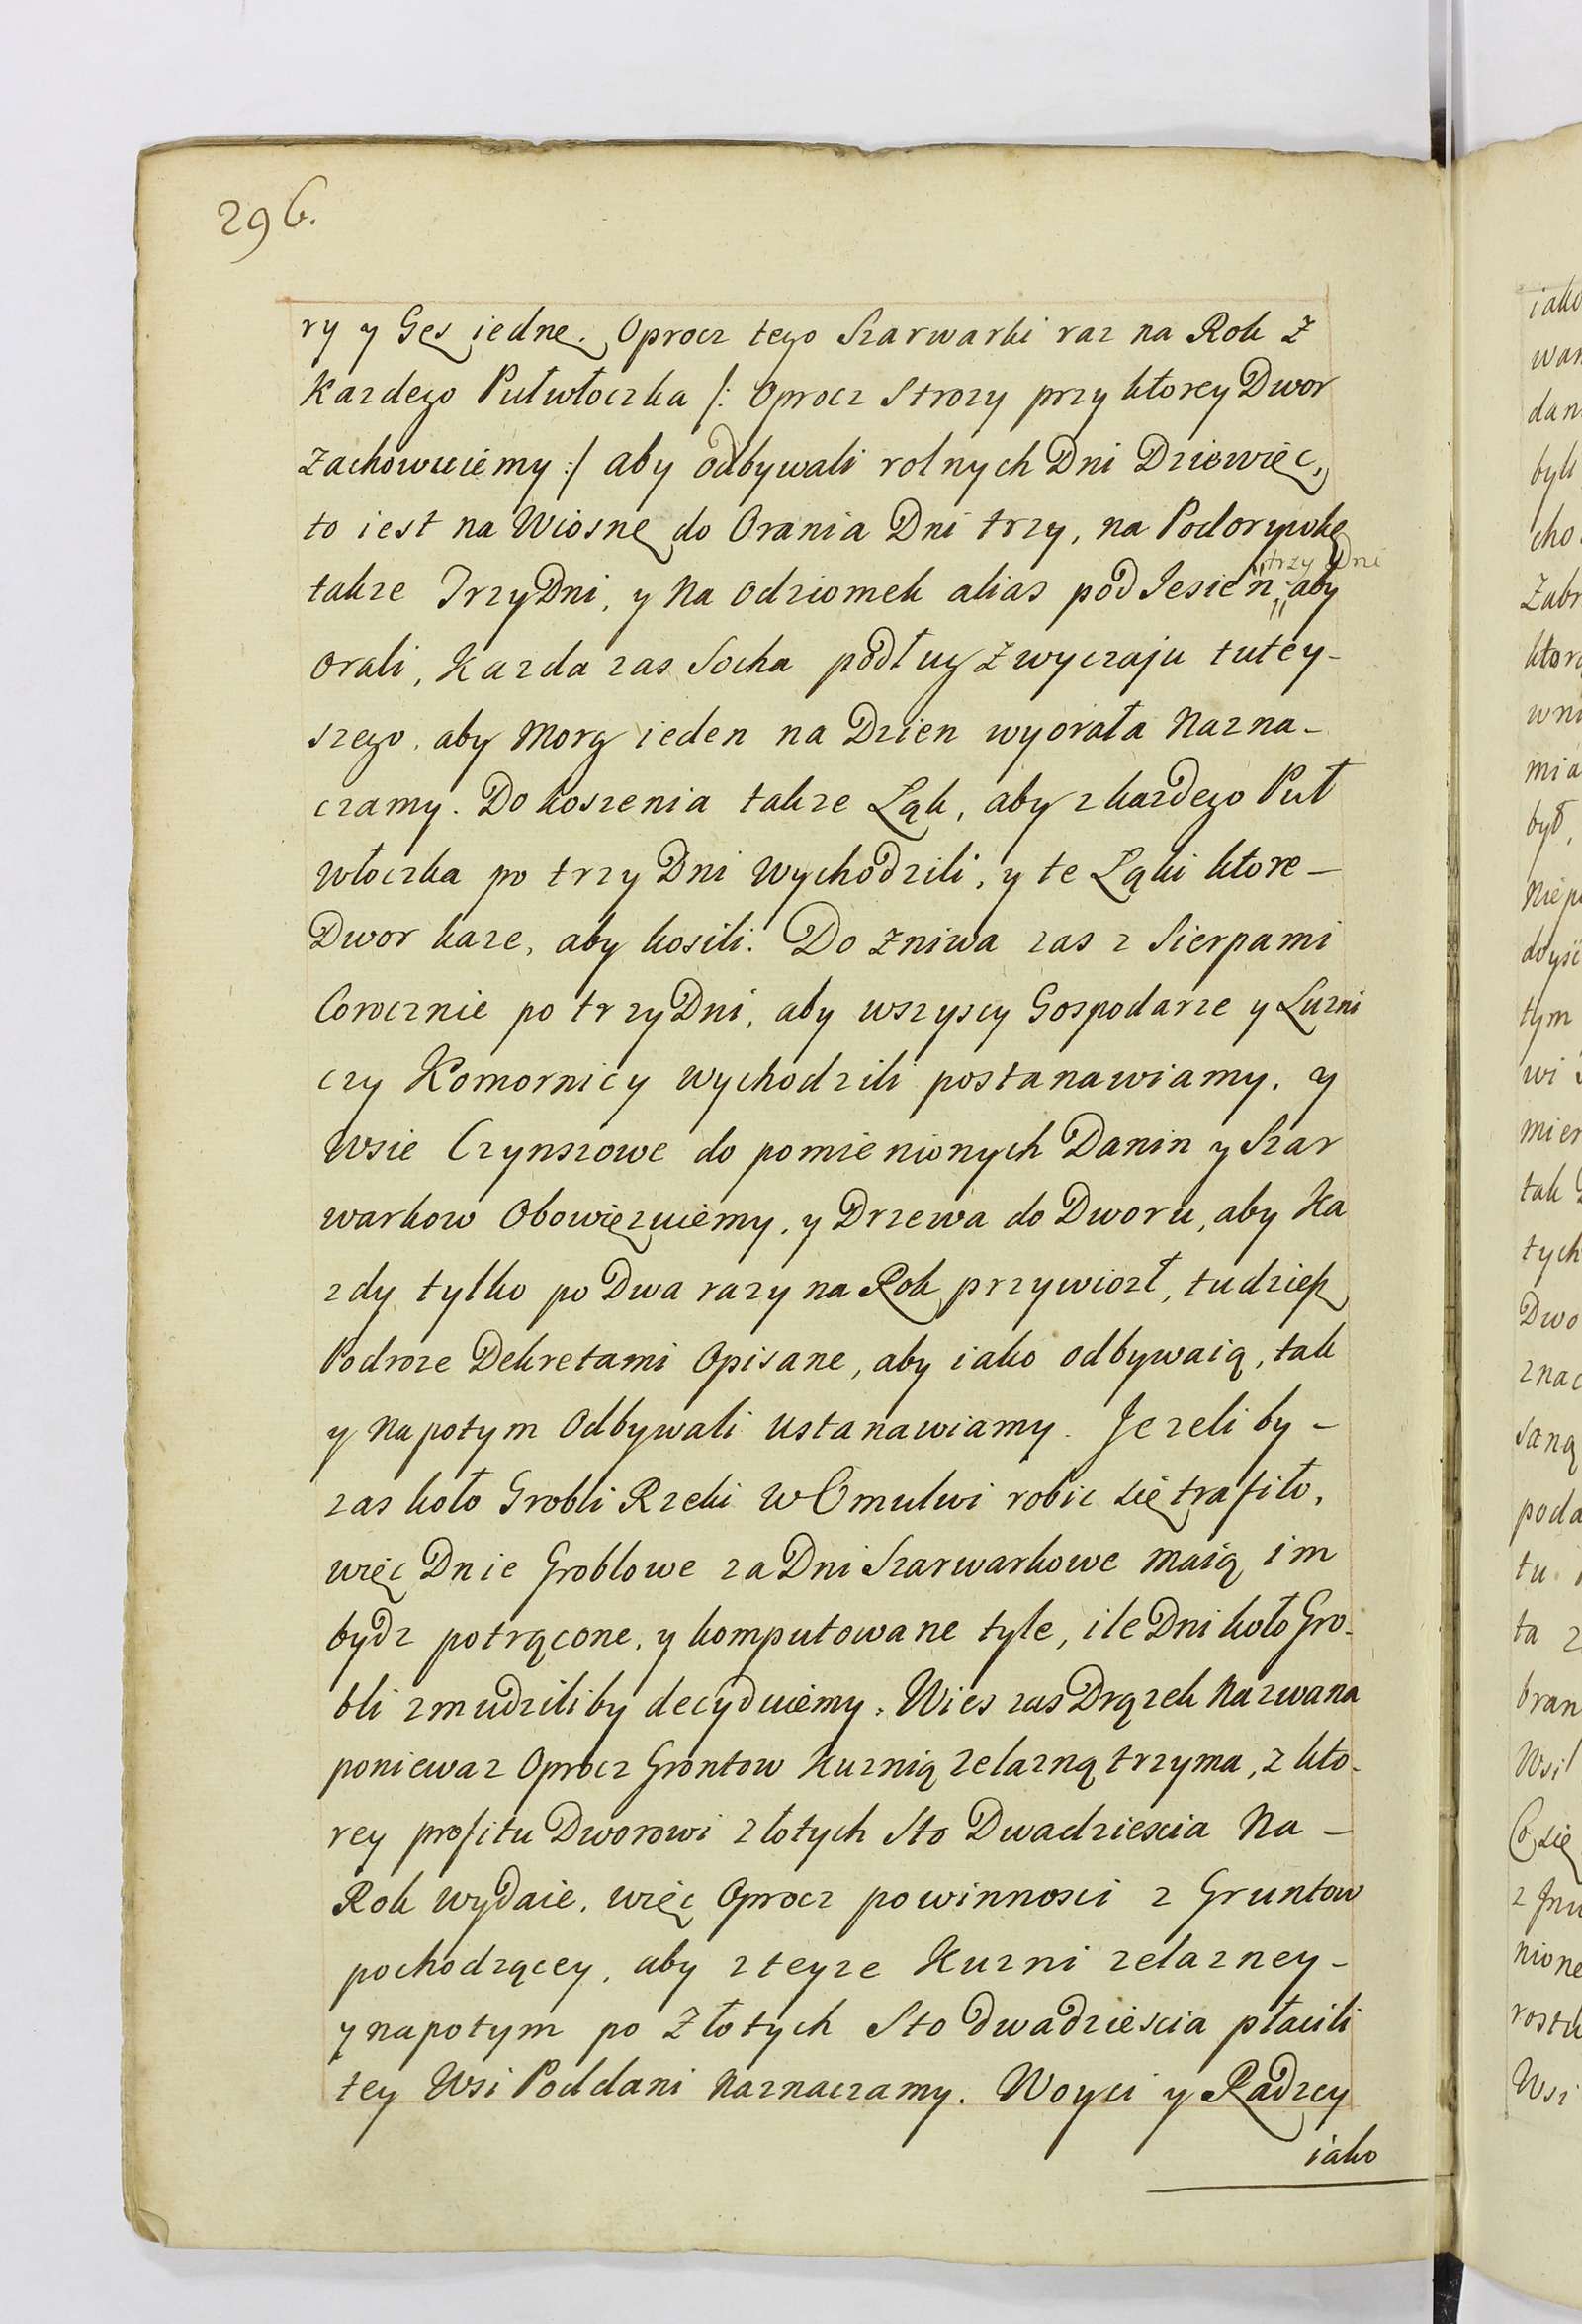 296.
ry y Gęs iednę. Oprocz tego Szarwarki raz na Rok z
Kazdego Pułwłoczka /: Oprocz Strozy przy ktorey Dwor
zachowuiemy :/ aby odbywali rolnych Dni Dziewięc,
to iest na Wiosnę do Orania Dni trzy, na Podorywkę
trzy Dni
takze Trzy Dni, y na Odziomek alias pod Iesien „ aby
orali, Kazda zas Socha podług zwyczaju tutey-
szego, aby Morg ieden na Dzien wyorała Nazna-
czamy. Do koszenia takze Ląk, aby z kazdego Puł
włoczka po trzy Dni wychodzili, y te Ląki ktore-
Dwor kaze, aby kosili. Do zniwa zas z Sierpami
Corocznie po trzy Dni, aby wszyscy Gospodarze y Luzni
czy Komornicy wychodzili postanawiamy, y
Wsie Czynszowe do pomienionych Danin y Szar
warkow Obowięzuiemy, y Drzewa do Dworu, aby Ka
zdy tylko po Dwa razy na Rok przywiozł, tudziesz
Podroze Dekretami Opisane, aby iako odbywaią, tak
y napotym Odbywali ustanawiamy. Jezeli by-
zas koło Grobli Rzeki w Omulwi robic się trafiło,
więc Dnie Groblowe za Dni Szarwarkowe maią im
bydz potrącone, y komputowane tyle, ile Dni koło Gro-
bli zmudziliby decyduiemy. Wies zas Drązek Nazwana
poniewaz Oprocz Grontow Kuznią zelazną trzyma, z kto-
rey profitu Dworowi złotych Sto Dwadziescia Na-
Rok wydaie, więc Oprocz powinnosci z Gruntow
pochodzącey, aby z teyze Kuzni zelazney-
y napotym po Złotych Sto dwadziescia płacili
tey Wsi Poddani Naznaczamy. Woyci y Radzcy
iako
iako
dan
byli
cho
Zabr
ktor
wni
mia
był,
tym
wi
mier
tak
tych
Dwo
znac
saną
poda
tu
ta z
bran
Wsi
Co się
nione
Wsi